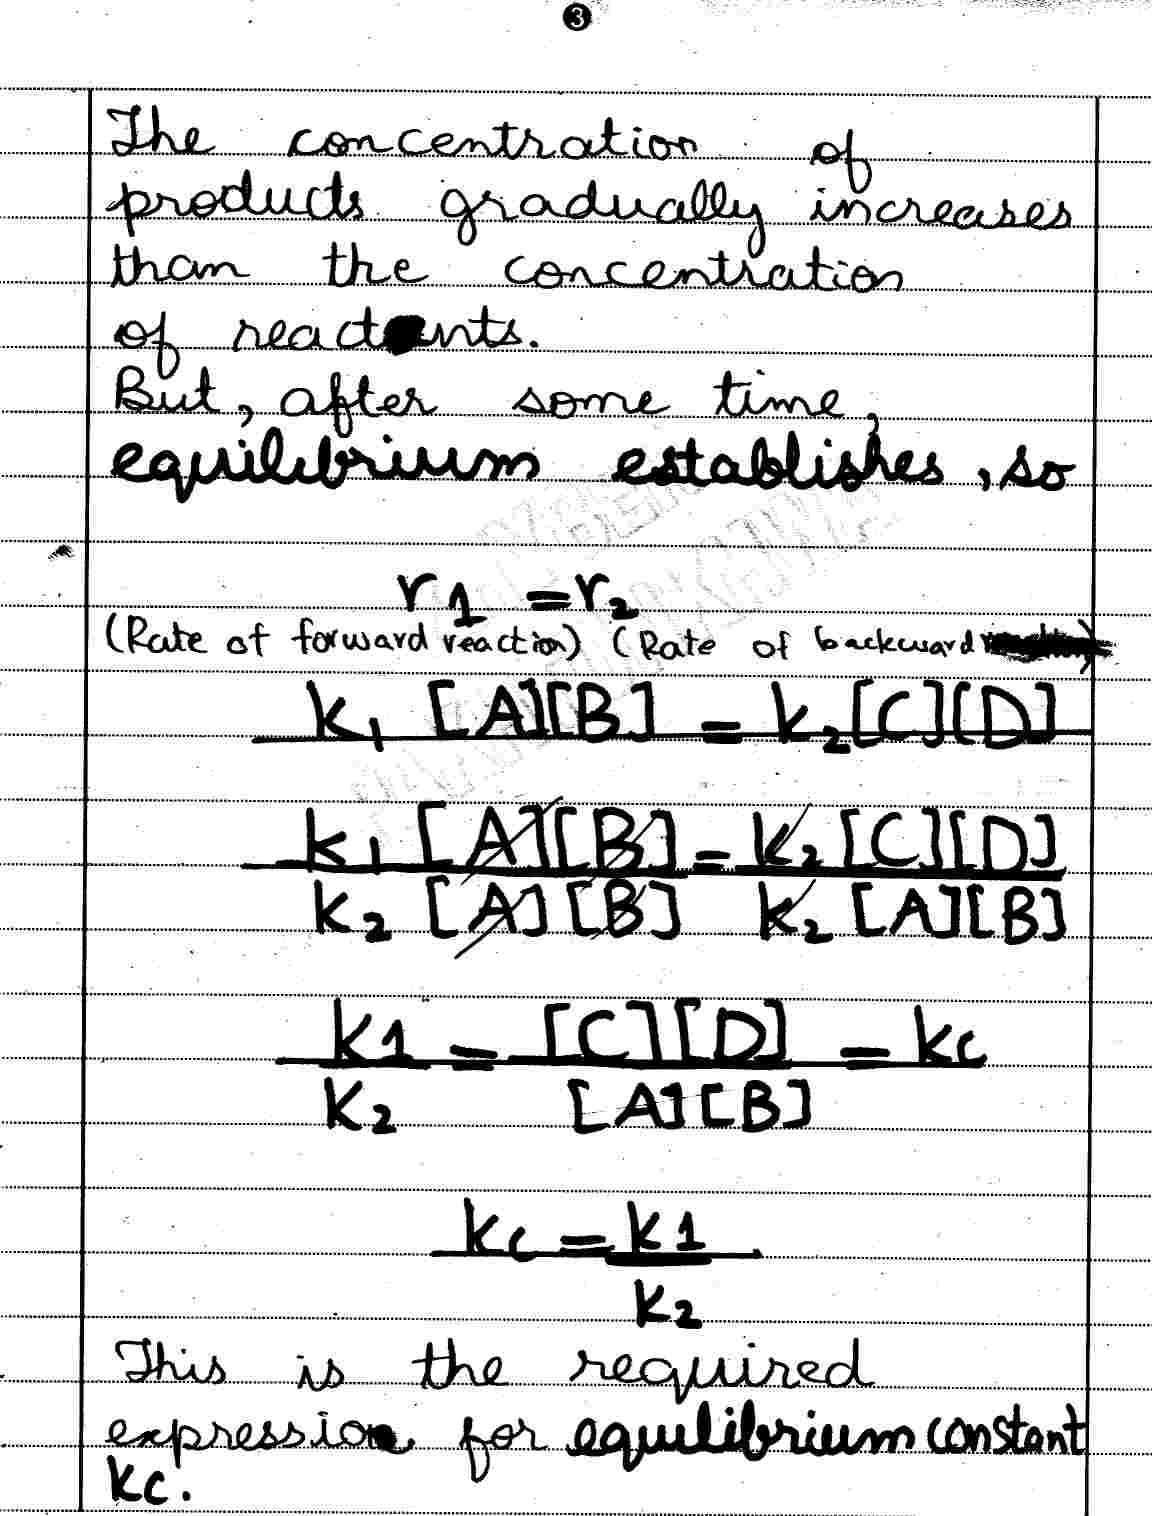 3
The concentration of
products gradually increases
than the concentration
of reactants.
But, after some time,
equilibrium establishes, so
r₁ = r₂
(Rate of forward reaction) (Rate of backward )
k₁ [A][B] = k₂[C][D]
k₁ [A][B] = k₂ [C][D]
k₂ [A][B] k₂ [A][B]
k1 = [C][D] = kc
K₂ [A][B]
kc = k1
K₂
This is the required
expression for equilibrium constant
Kc.